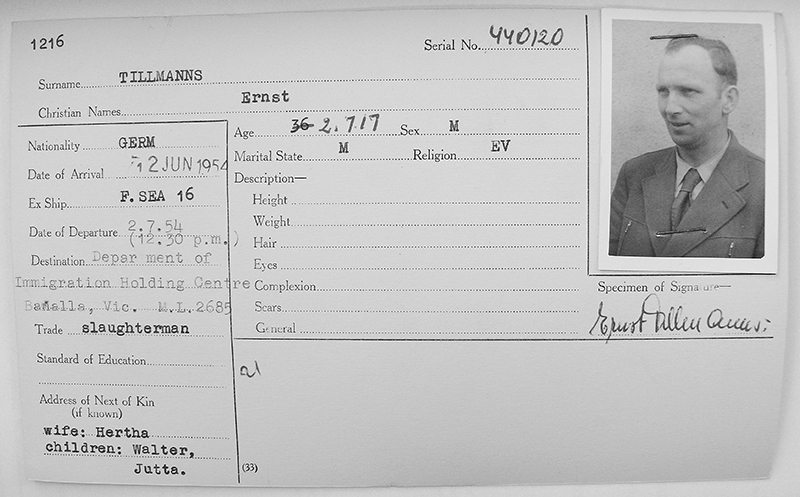 1216
Serial No. 440120
Surname TILLMANNS
Christian Names Ernst
Nationality GERM
Date of Arrival 12 JUN 1954
Ex Ship F. SEA 16
Date of Departure 2.7.54
(12.30 p.m.)
Destination Depar ment of
Immigration Holding Centre
Vic. M.L. 2685
Trade slaughterman
Standard of Education
Address of Next of Kin
(if known)
wife: Hertha
children: Walter,
Jutta.
Age 36 2.7.17 Sex M
Marital State M Religion EV
Description—
Height
Weight
Hair
Eyes
Complexion
Scars
General
(33)
Specimen of Signature—
Ernst